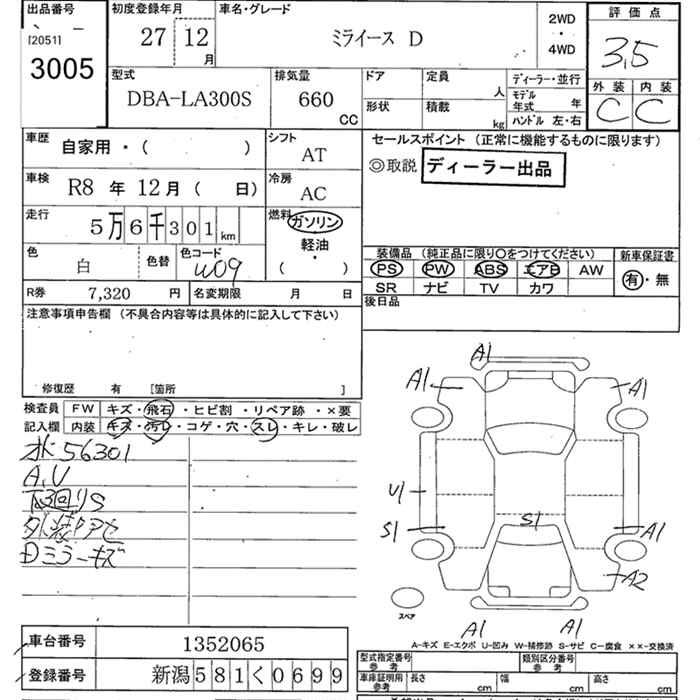 出品番号 初度登録年月 車名・グレード 2WD・4WD 評価点
[2051] 3005 27 12月 ミライース D 3.5
型式 DBA-LA300S 排気量 660 CC
ドア 定員 人 ディーラー・並行
形状 積載 kg モデル年式 年
ハンドル 左・右
外装 内装
C C
車歴 自家用・( ) シフト AT
車検 R8 年 12月( 日) 冷房 AC
走行 5万6千301km 燃料 ガソリン 軽油・( )
色 白 色替 色コード W09
R券 7,320 円 名変期限 月 日
セールスポイント (正常に機能するものに限ります)
◎取説 ディーラー出品
装備品 (純正品に限り〇をつけてください) 新車保証書
PS PW ABS エアB AW 有・無
SR ナビ TV カワ
後日品
注意事項申告欄 (不具合内容等は具体的に記入して下さい)
修復歴 有 [箇所 ]
検査員記入欄 FW キズ・飛石・ヒビ割・リペア跡・×要
内装 キズ・汚レ・コゲ・穴・スレ・キレ・破レ
56301
A,U
下回りS
外装アセ
Dミラーキズ
A1
A1
A1
U1
S1
S1
A1
A2
スペア
A1
A1
A-キズ E-エクボ U-凹み W-補修跡 S-サビ C-腐食 ××-交換済
車台番号 1352065
登録番号 新潟581く0699
型式指定番号 参考 類別区分番号 参考
車庫証明用 参考 長さ cm 幅 cm 高さ cm